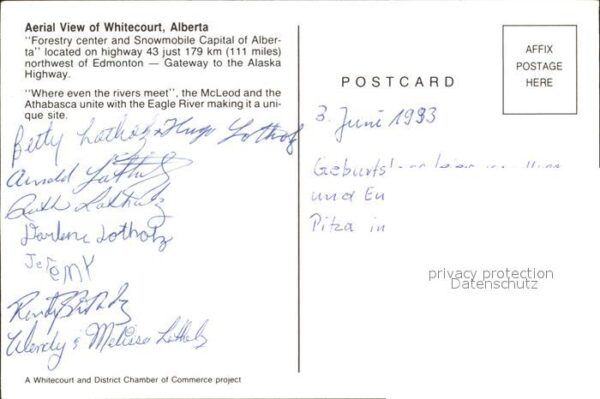 Aerial View of Whitecourt, Alberta
"Forestry center and Snowmobile Capital of Alber-
ta" located on highway 43 just 179 km (111 miles)
northwest of Edmonton — Gateway to the Alaska
Highway.
"Where even the rivers meet", the McLeod and the
Athabasca unite with the Eagle River making it a uni-
que site.
Betty Lotholz Hugo Lotholz
Arnold Lotholz
Ruth Lotholz
Darlene Lotholz
Jeremy
Wendy & Melissa Lotholz
A Whitecourt and District Chamber of Commerce project
POSTCARD
AFFIX
POSTAGE
HERE
3. Juni 1993
und
Pitza in
privacy protection
Datenschutz